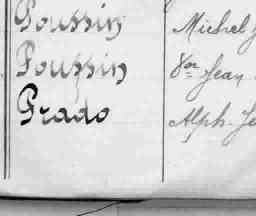 Poussin Michel J
Poussin Vor Jean
Prado Alph. Je